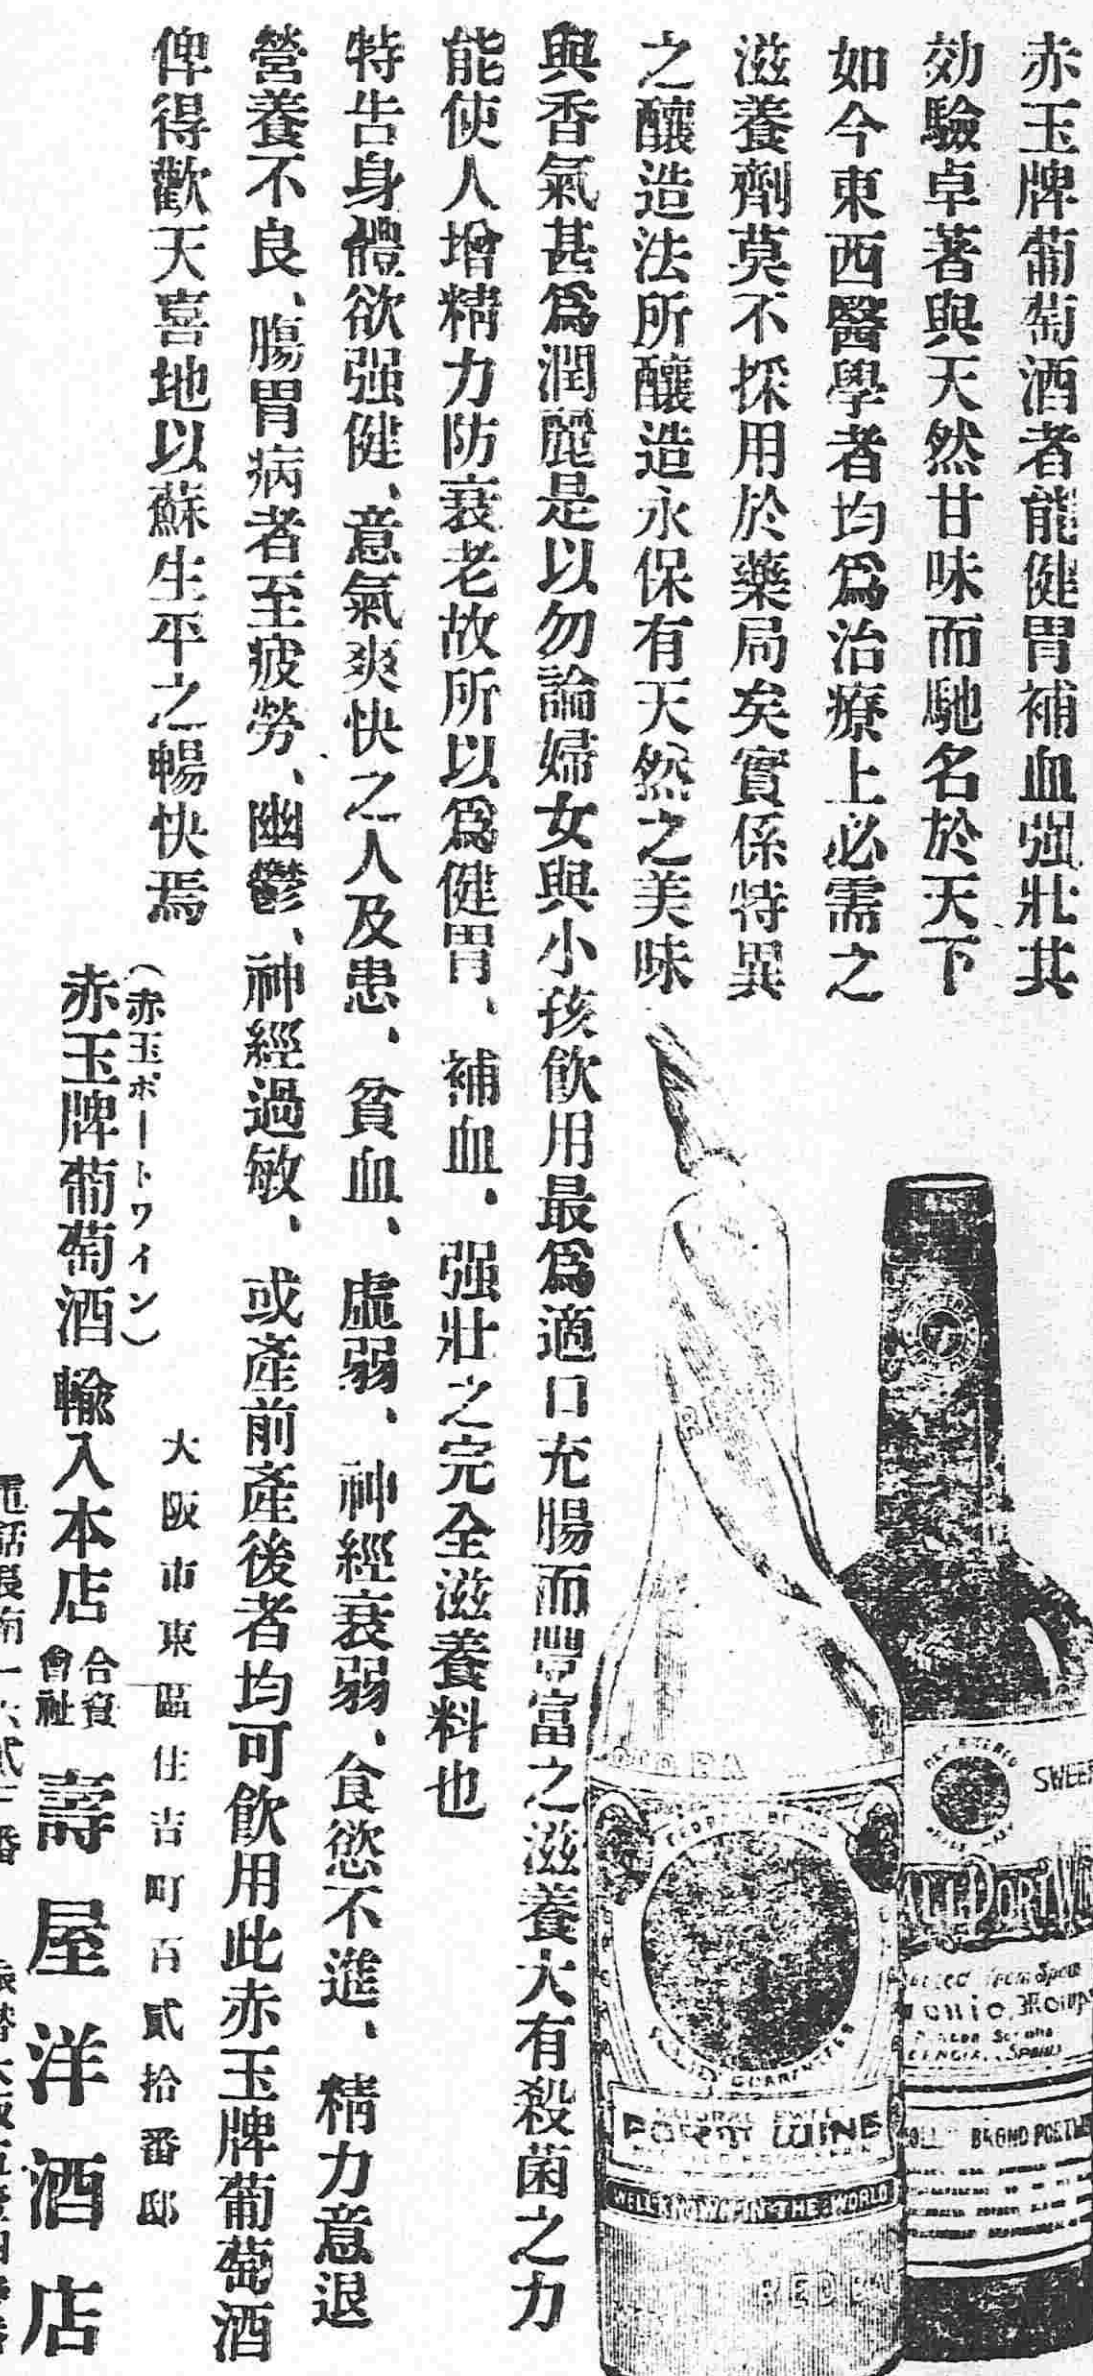 赤玉牌葡萄酒者能健胃補血强壯其
効驗卓著與天然甘味而馳名於天下
如今東西醫學者均爲治療上必需之
滋養劑莫不採用於藥局矣實係特異
之釀造法所釀造永保有天然之美味
與香氣甚爲潤麗是以勿論婦女與小孩飲用最爲適口充腸而豐富之滋養大有殺菌之力
能使人增精力防衰老故所以爲健胃、補血、强壯之完全滋養料也
特告身體欲强健、意氣爽快之人及患、貧血、虛弱、神經衰弱、食慾不進、精力意退
營養不良、腸胃病者至疲勞、幽鬱、神經過敏、或產前產後者均可飲用此赤玉牌葡萄酒
俾得歡天喜地以蘇生平之暢快焉
(赤玉ポートワイン)
赤玉牌葡萄酒 輸入本店
大阪市東區住吉町百貳拾番邸
合資會社 壽屋洋酒店
PORT WINE
WELL KNOWN IN THE WORLD
RED BA
SWEE
BRAND PORT WINE